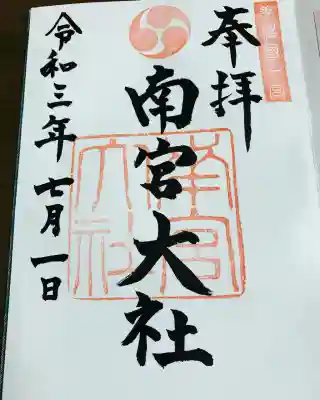 奉拝
南宮大社
令和三年七月一日
南宮
大社